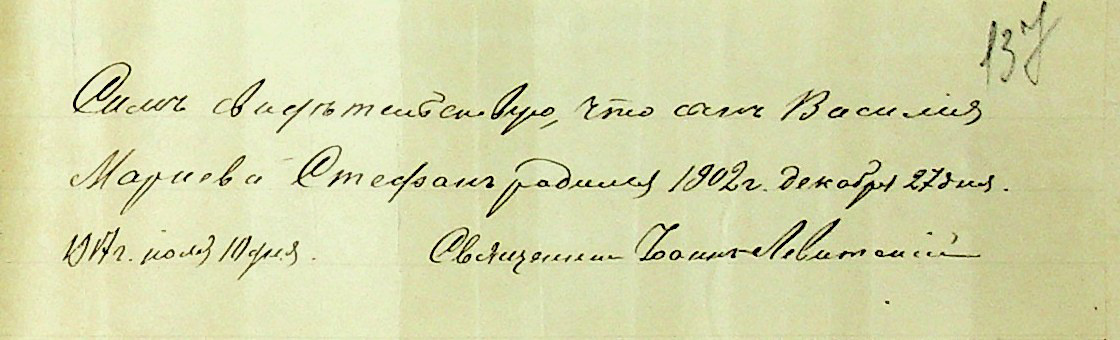 137
Симъ свидѣтельствую, что сынъ Василия
Мариева Стефанъ родился 1902 г. декабря 27 дня.
1917 г. июля 10 дня. Священникъ Іоаннъ Левитскій